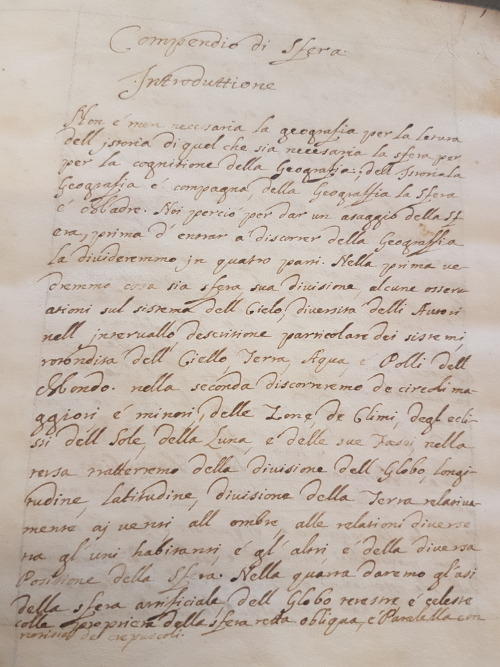 Compendio di Sfera.
Introduttione
Non é men necesaria la geografia per la letura
dell jstoria di quel che sia necesaria la sfera per
per la cognitione della Geografia; dell Istoria la
Geografia é compagna della Geografia la Sfera
é Madre. Noi perció per dar un asaggio della Sf
era, prima d'entrar a discorrer della Geografia
la divideremmo jn quatro parti. Nella prima ve
dremmo cosa sia sfera sua divisione, alcune osserv
ationi sul sistema dell Cielo, diversitá delli Autori
nell jntervallo, descritione particolare dei sistemi,
rotonditá dell Ciello, Terra, Aqua, é Polli dell
Mondo. nella seconda discorreremo de circoli ma-
ggiori é minori, delle Zone, de Climi, degl ecli-
ssi dell Sole, della Luna, é delle sue Fassi, nella
terza tratterremo della divisione dell Globo, longi
tudine, Latitudine, divisione della Terra relativa-
mente aj venti all ombre, alle relationi diverse
tra gl'uni habitanti é gl'altri é della diversa
Positione della Sfera. Nella quarta daremo gl'usi
della sfera artificiale dell Globo terestre é celeste
colle proprietá della sfera retta obliqua, é Paralella con
del crepuscoli.